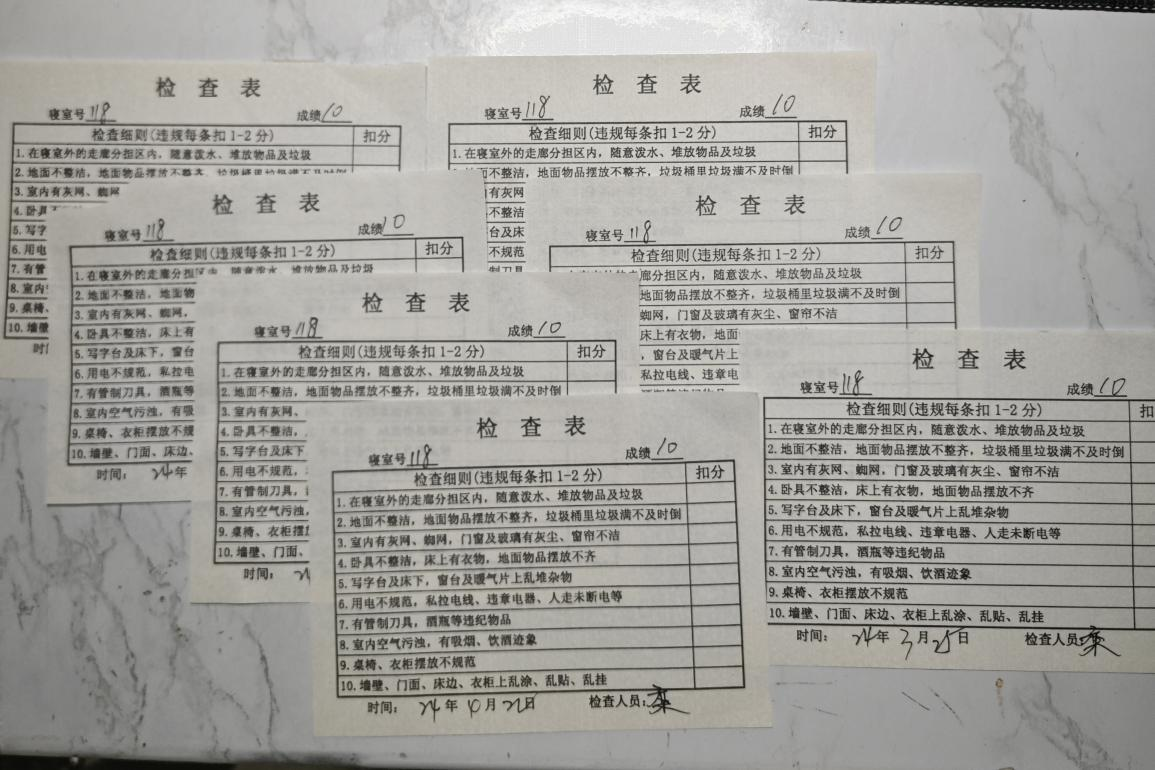 检查表
寝室号 118 成绩 10
检查细则(违规每条扣1-2分) 扣分
1.在寝室外的走廊分担区内，随意泼水、堆放物品及垃圾
2.地面不整洁，地面物品摆放不整齐，垃圾桶里垃圾满不及时倒
3.室内有灰网、蜘网
4.卧具
5.写字
6.用电
7.有管
8.室内
9.桌椅、
10.墙壁
时
检查表
寝室号 118 成绩 10
检查细则(违规每条扣1-2分) 扣分
1.在寝室外的走廊分担区内，随意泼水、堆放物品及垃圾
不整洁，地面物品摆放不整齐，垃圾桶里垃圾满不及时倒
有灰网
不整洁
台及床
不规范
制刀具
检查表
寝室号 118 成绩 10
检查细则(违规每条扣1-2分) 扣分
1.在寝室外的走廊分担区内，随意泼水、堆放物品及垃圾
2.地面不整洁，地面物
3.室内有灰网、蜘网，
4.卧具不整洁，床上有
5.写字台及床下，窗台
6.用电不规范，私拉电
7.有管制刀具，酒瓶等
8.室内空气污浊，有吸
9.桌椅、衣柜摆放不规
10.墙壁、门面、床边、
时间： 24年
检查表
寝室号 118 成绩 10
检查细则(违规每条扣1-2分) 扣分
走廊分担区内，随意泼水、堆放物品及垃圾
地面物品摆放不整齐，垃圾桶里垃圾满不及时倒
蜘网，门窗及玻璃有灰尘、窗帘不洁
床上有衣物，地面
，窗台及暖气片上
私拉电线、违章电
检查表
寝室号 118 成绩 10
检查细则(违规每条扣1-2分) 扣分
1.在寝室外的走廊分担区内，随意泼水、堆放物品及垃圾
2.地面不整洁，地面物品摆放不整齐，垃圾桶里垃圾满不及时倒
3.室内有灰网、
4.卧具不整洁，
5.写字台及床下
6.用电不规范，
7.有管制刀具，
8.室内空气污浊，
9.桌椅、衣柜摆
10.墙壁、门面、
时间：
检查表
寝室号 118 成绩 10
检查细则(违规每条扣1-2分) 扣
1.在寝室外的走廊分担区内，随意泼水、堆放物品及垃圾
2.地面不整洁，地面物品摆放不整齐，垃圾桶里垃圾满不及时倒
3.室内有灰网、蜘网，门窗及玻璃有灰尘、窗帘不洁
4.卧具不整洁，床上有衣物，地面物品摆放不齐
5.写字台及床下，窗台及暖气片上乱堆杂物
6.用电不规范，私拉电线、违章电器、人走未断电等
7.有管制刀具，酒瓶等违纪物品
8.室内空气污浊，有吸烟、饮酒迹象
9.桌椅、衣柜摆放不规范
10.墙壁、门面、床边、衣柜上乱涂、乱贴、乱挂
时间： 24年 3月 25日 检查人员：栾
检查表
寝室号 118 成绩 10
检查细则(违规每条扣1-2分) 扣分
1.在寝室外的走廊分担区内，随意泼水、堆放物品及垃圾
2.地面不整洁，地面物品摆放不整齐，垃圾桶里垃圾满不及时倒
3.室内有灰网、蜘网，门窗及玻璃有灰尘、窗帘不洁
4.卧具不整洁，床上有衣物，地面物品摆放不齐
5.写字台及床下，窗台及暖气片上乱堆杂物
6.用电不规范，私拉电线、违章电器、人走未断电等
7.有管制刀具，酒瓶等违纪物品
8.室内空气污浊，有吸烟、饮酒迹象
9.桌椅、衣柜摆放不规范
10.墙壁、门面、床边、衣柜上乱涂、乱贴、乱挂
时间： 24年 月 日 检查人员：栾